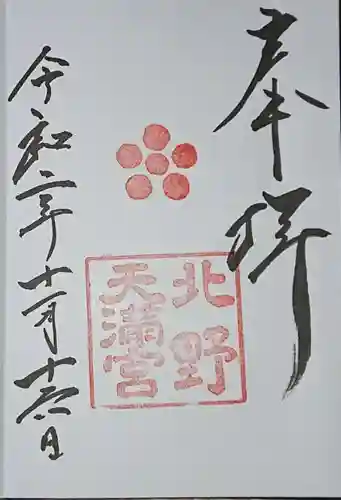 奉拝
北野
天満宮
令和二年十一月十六日